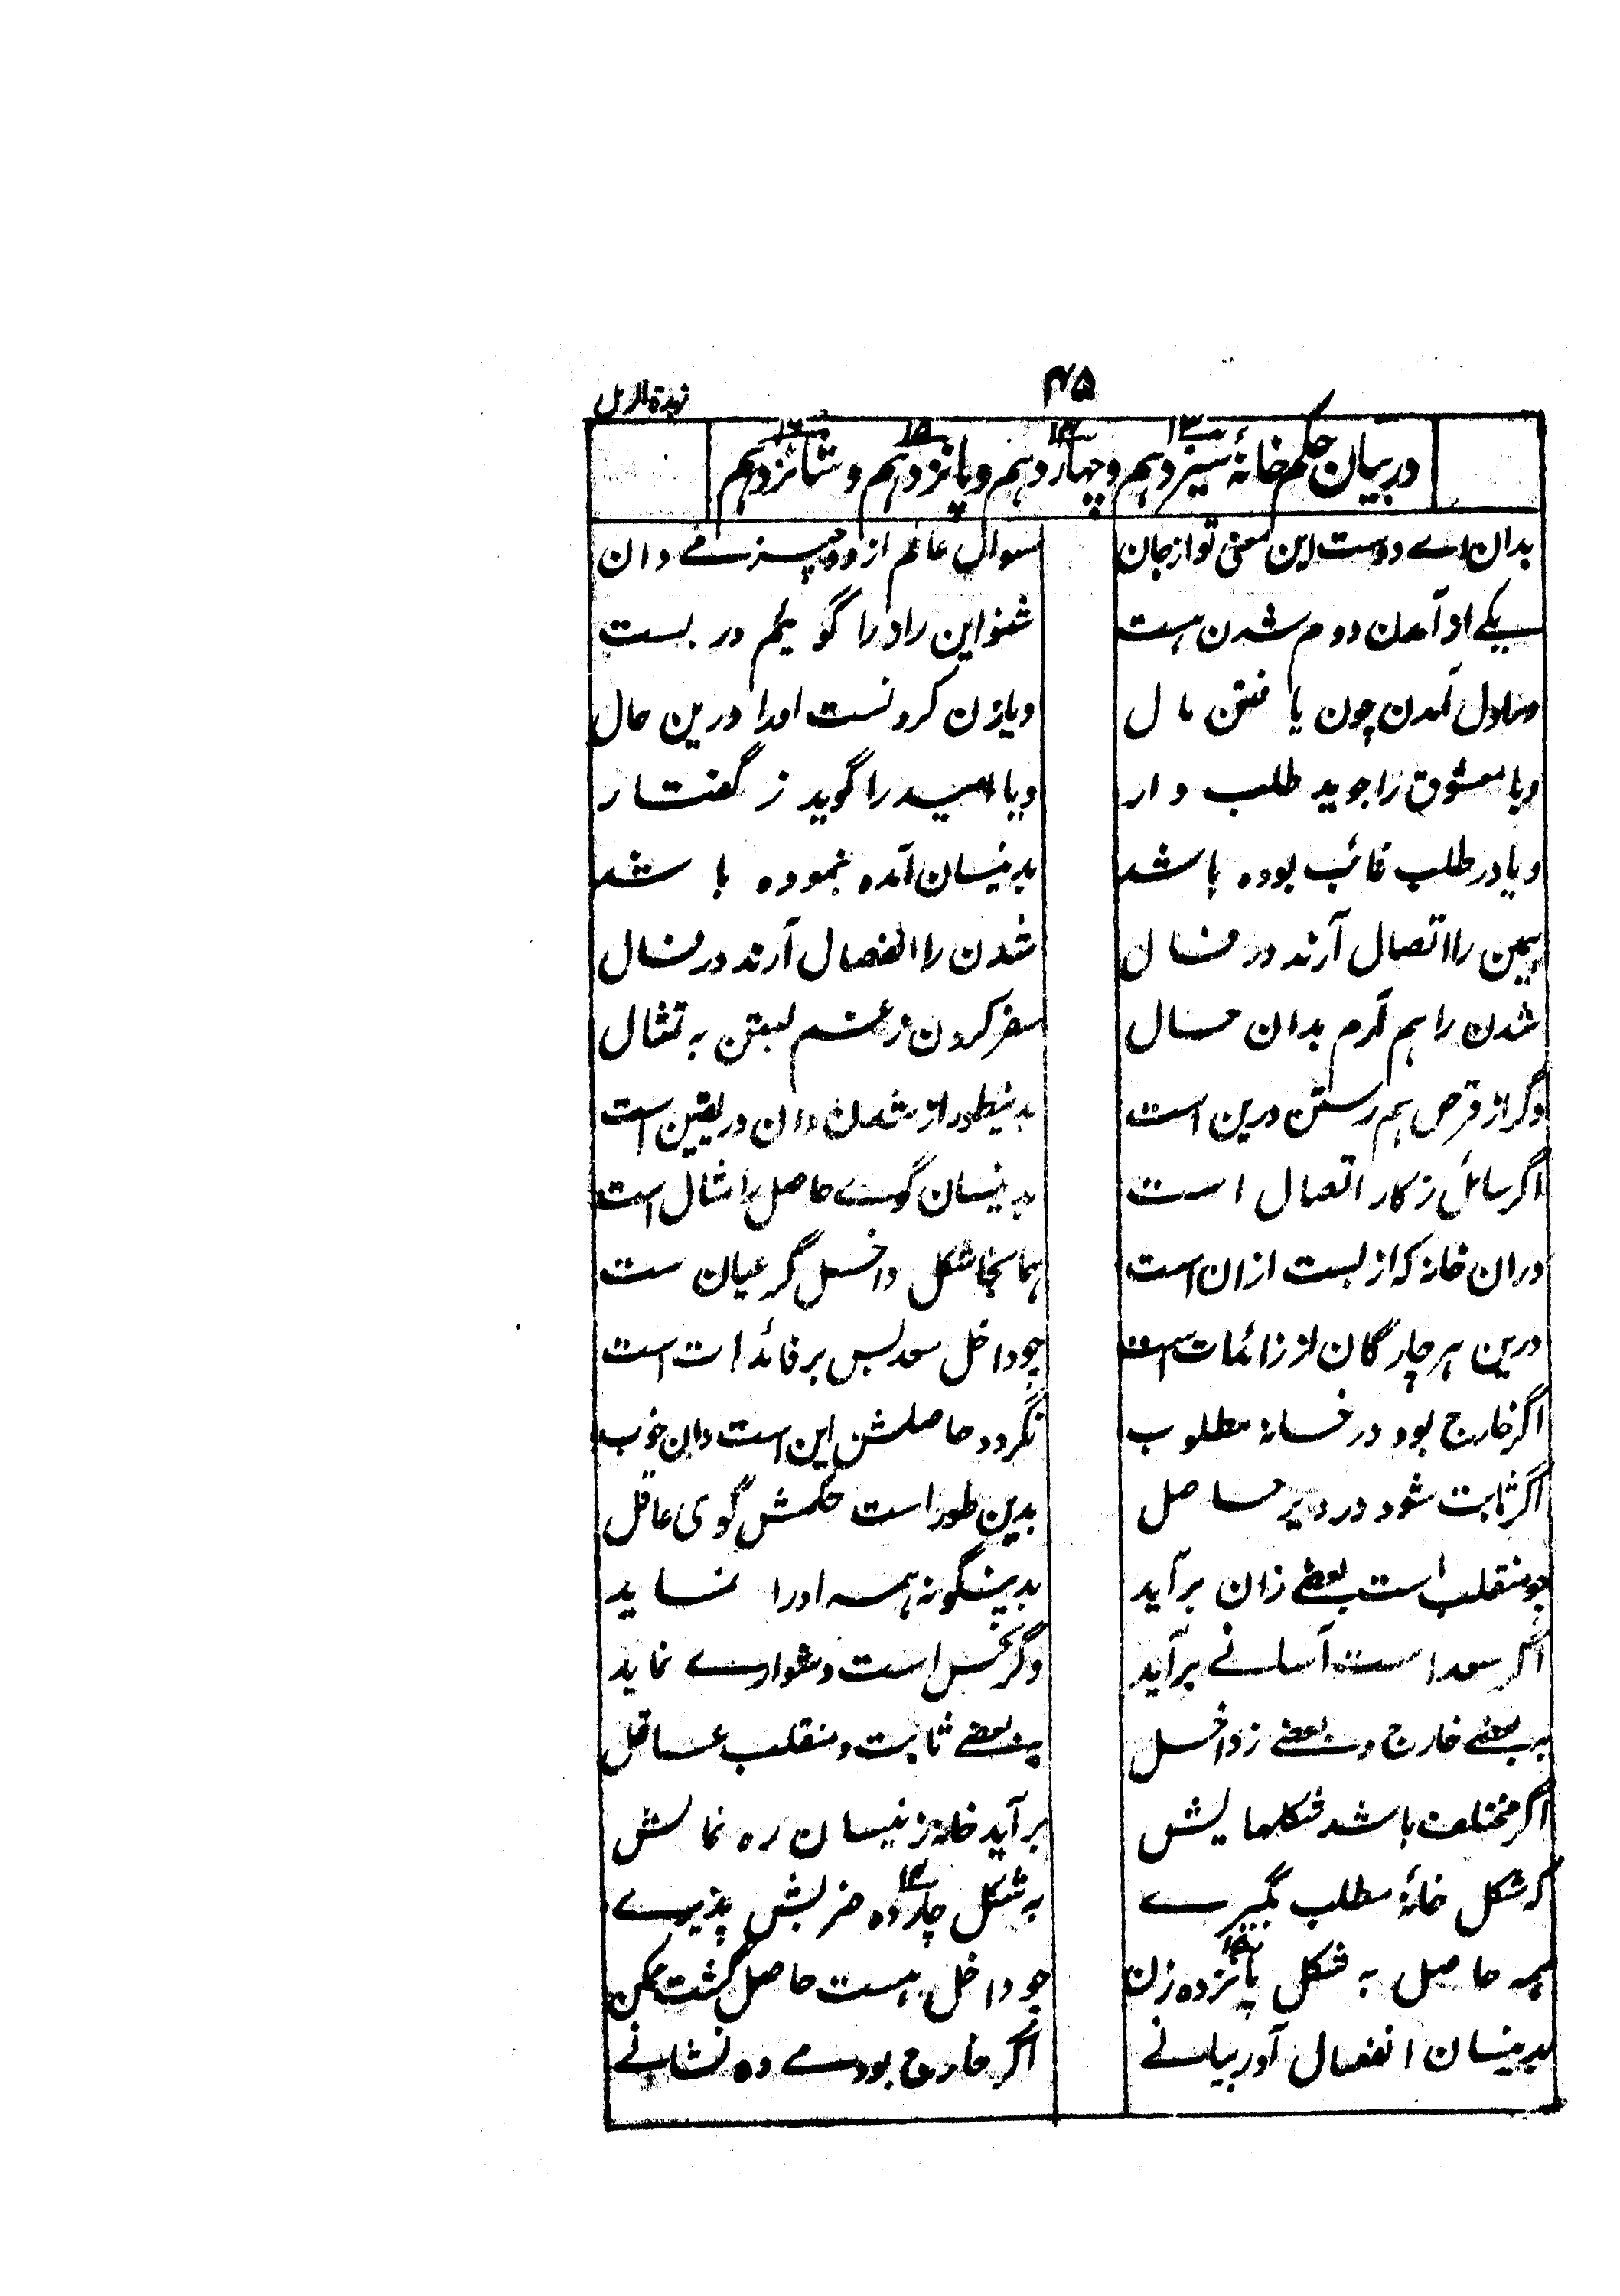 ۴۵
زبدة الرمل
در بیان حکم خانهٔ سیزدهم و چهاردهم و پانزدهم و شانزدهم
۱۳ ۱۴ ۱۵ ۱۶
بدان اے دوست این معنی تو از جان سوال عالم از دو چیز مے دان
یکے او آمدن دوم شدن هست شنو این راد را گویم در بست
اول آمدن چون یافتن مال ویازن کردنست اورا درین حال
ویا معشوق را جوید طلب دار ویا امید را گوید ز گفتار
ویا در طلب غائب بوده باشد بدینسان آمده نموده باشد
همین را اتصال آرند در فال شدن را انفصال آرند در فال
شدن را هم آرم بدان حال سفر کردن زغم بستن به تثال
وگر از قرض هم رستن درین است بدینطور از شدن دان در یقین است
اگر سائل ز کار اتصال است بدینسان گوے حاصل را مثال است
دران خانه که از بست ازان است همانجا شکل داخل گر عیان ست
درین هر چار گان از زائدات است چو داخل سعد بس بر فائدات است
اگر خارج بود در خانهٔ مطلوب نگردد حاصلش این است دان خوب
اگر ثابت شود در دیر حاصل بدین طور است حکمش گوی عاقل
چو منقلب است بعضے زان برآید بدینگونه همه اورا نماید
اگر سعد است آسانے برآید وگر نحس است دشوارے نماید
به بعضے خارج و بعضے ز داخل به بعضے ثابت و منقلب عاقل
اگر مختلف باشد شکلهایش برآید خانه زینسان ره نمایش
که شکل خانهٔ مطلب بگیرے به شکل چارده ۱۴ ضربش پذیرے
همه حاصل به شکل پانزده ۱۵ زن چو داخل هست حاصل گشت ممکن
بدینسان انفصال آور بیانے اگر خارج بود مے ده نشانے